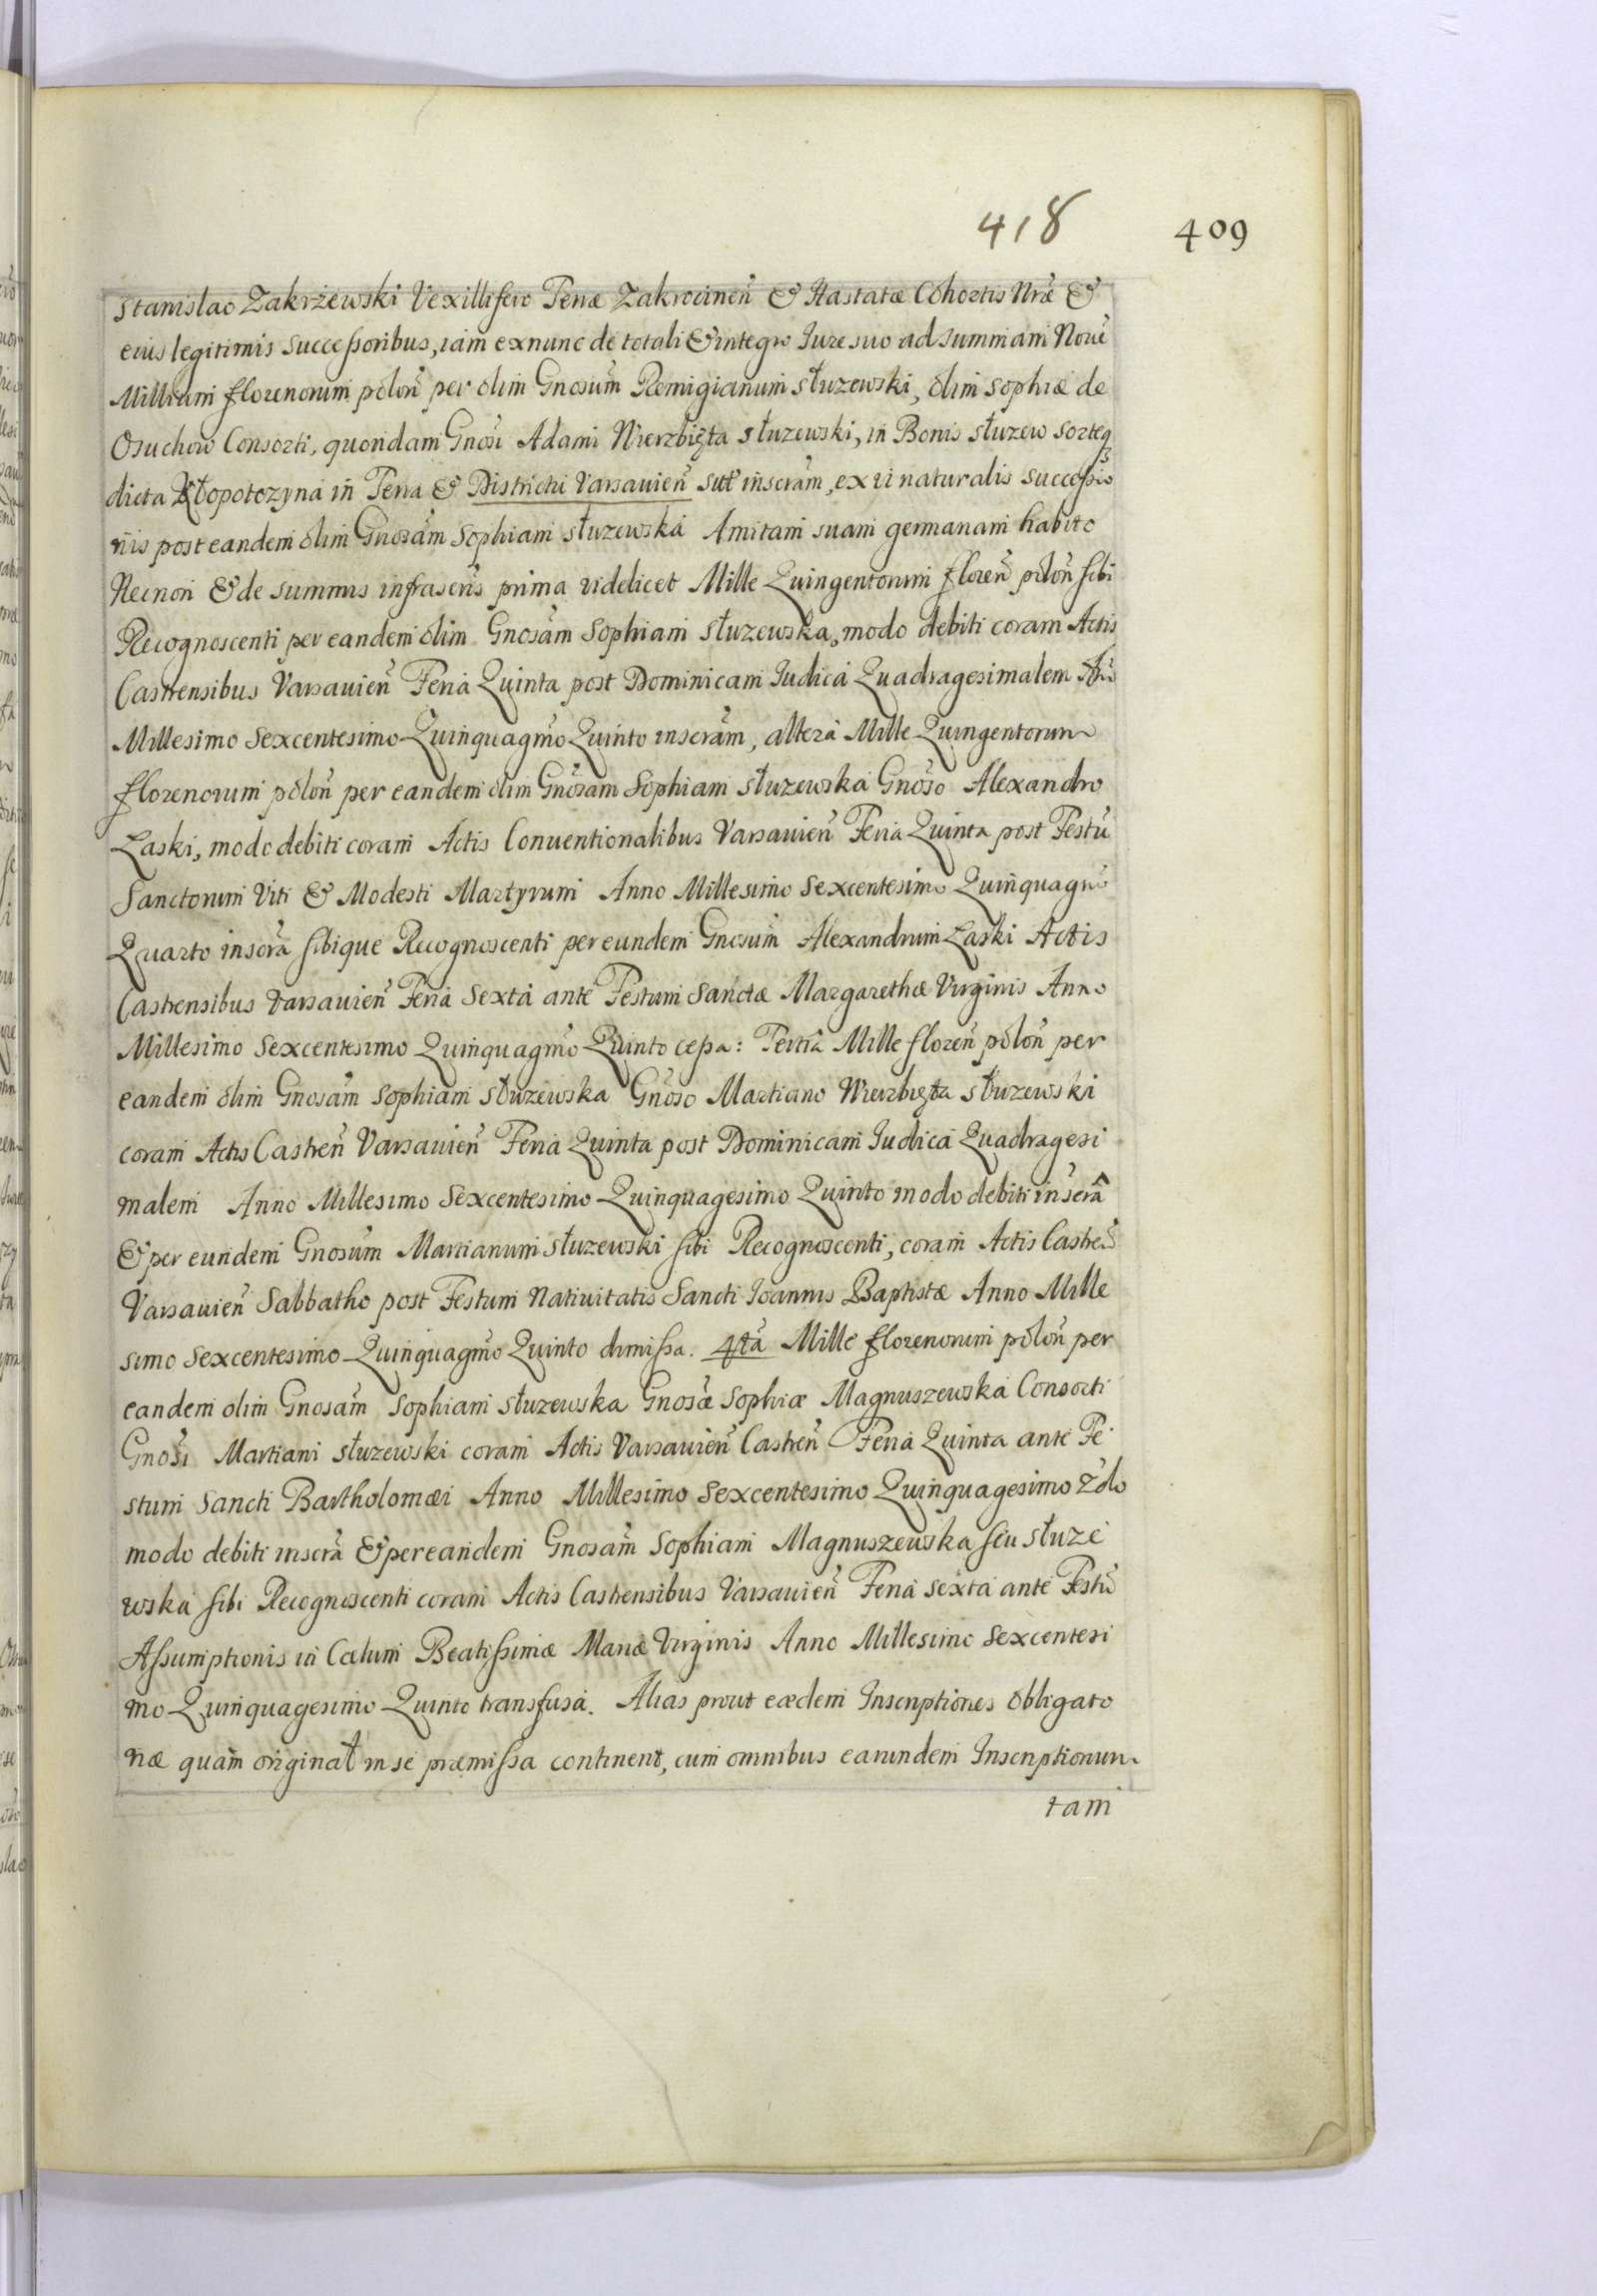 418 409
Stanislao Zakrżewski Vexillifero Terræ Zakrocineñ & Hastatæ Cohortis Nræ &
eius legitimis Successoribus, iam exnunc de totali & integro Iure suo ad summam Nouē
Millium florenorum poloñ per olim Gnosum Remigianum Służewski, olim Sophiæ de
Osuchow Consorti, quondam Gnosi Adami Wierzbięta Służewski, in Bonis Służew sorteq
dicta Kłopotozyna in Terra & Districtu Varsauieñ sūt inscram, ex ui naturalis successio
nis post eandem olim Gnosam Sophiam Służewska Amitam suam germanam habito
Necnon & de summis infrascris prima videlicet Mille Quingentorum floreñ poloñ sibi
Recognoscenti per eandem olim Gnosam Sophiam Służewska, modo debiti coram Actis
Castrensibus Varsauieñ Feria Quinta post Dominicam Iudica Quadragesimalem Ao
Millesimo Sexcentesimo Quinquagmo Quinto inscram, altera Mille Quingentorum
florenorum poloñ per eandem olim Gnosam Sophiam Służewska Gnoso Alexandro
Łaski, modo debiti coram Actis Conuentionalibus Varsauieñ Feria Quinta post Festū
Sanctorum Viti & Modesti Martyrum Anno Millesimo Sexcentesimo Quinquagmo
Quarto inscra sibique Recognoscenti per eundem Gnosum Alexandrum Łaski Actis
Castrensibus Varsauieñ Feria Sexta ante Festum Sanctæ Margarethæ Virginis Anno
Millesimo Sexcentesimo Quinquagmo Quinto cessa: Tertia Mille floreñ poloñ per
eandem olim Gnosam Sophiam Służewska Gnoso Martiano Wierzbięta Służewski
coram Actis Castreñ Varsauieñ Feria Quinta post Dominicam Iudica Quadragesi
malem Anno Millesimo Sexcentesimo Quinquagesimo Quinto modo debiti inscra
& per eundem Gnosum Martianum Służewski sibi Recognoscenti, coram Actis Castreñ
Varsauieñ Sabbatho post Festum Natiuitatis Sancti Ioannis Baptistæ Anno Mille
simo Sexcentesimo Quinquagmo Quinto dimissa. 4ta Mille florenorum poloñ per
eandem olim Gnosam Sophiam Służewska Gnosæ Sophiæ Magnuszewska Consorti
Gnosi Martiani Służewski coram Actis Varsauieñ Castreñ Feria Quinta ante Fe
stum Sancti Bartholomæi Anno Millesimo Sexcentesimo Quinquagesimo 2do
modo debiti inscra & per eandem Gnosam Sophiam Magnuszewska seu Służe
wska sibi Recognoscenti coram Actis Castrensibus Varsauieñ Feria Sexta ante Festū
Assumptionis in Cælum Beatissimæ Mariæ Virginis Anno Millesimo Sexcentesi
mo Quinquagesimo Quinto transfusa. Alias prout eædem Inscriptiones obligato
riæ quam originał in se præmissa continent, cum omnibus earundem Inscriptionum
tam